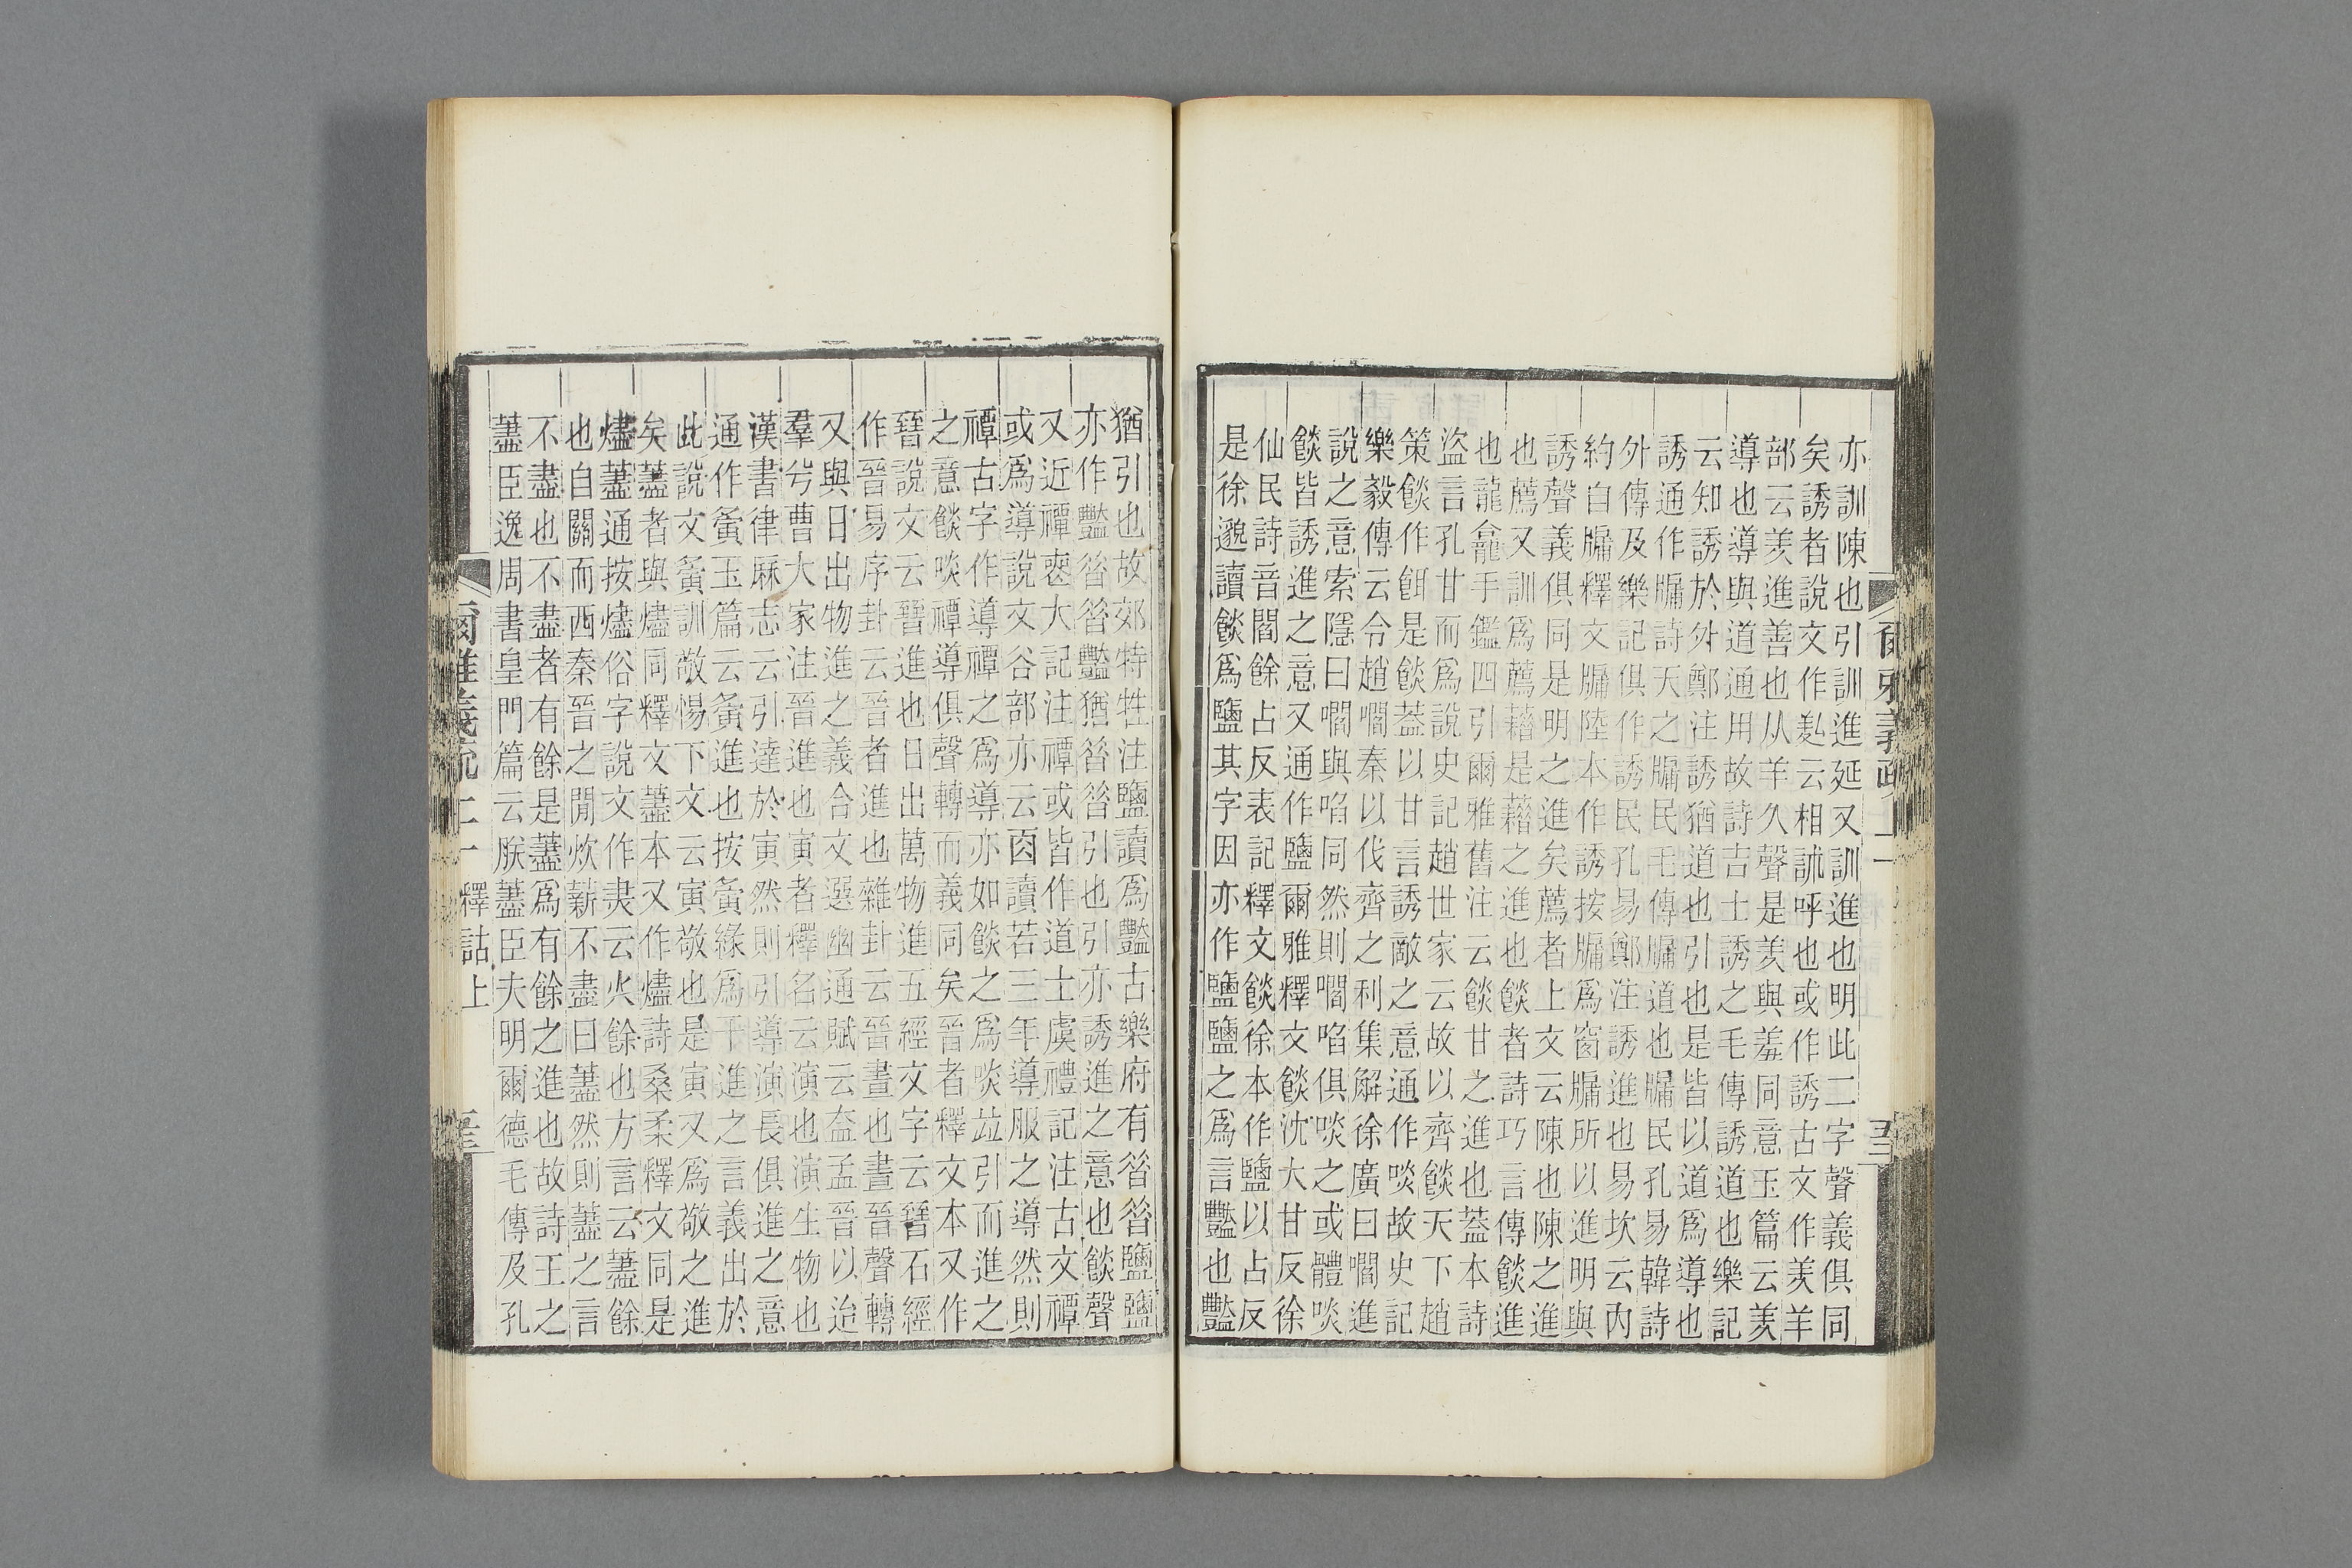 爾雅義疏 上一 五三
亦訓陳也引訓進延又訓進也明此二字聲義俱同
矣誘者說文作䍻云相訹呼也或作誘古文作羑羊
部云羑進善也从羊久聲是羑與羞同意玉篇云羑
導也導與道通用故詩古士誘之毛傳誘道也樂記
云知誘於外鄭注誘猶道也引也是皆以道爲導也
誘通作牖詩天之牖民毛傳牖道也牖民孔易韓詩
外傳及樂記俱作誘民孔易鄭注誘進也易坎云內
約自牖釋文牖陸本作誘按牖爲窗牖所以進明與
誘聲義俱同是明之進矣薦者上文云陳也陳之進
也薦又訓爲薦藉是藉之進也餤者詩巧言傳餤進
也龍龕手鑑四引爾雅舊注云餤甘之進也蓋本詩
盜言孔甘而爲說史記趙世家云故以齊餤天下趙
策餤作餌是餤蓋以甘言誘敵之意通作啖故史記
樂毅傳云令趙嚪秦以伐齊之利集解徐廣曰嚪進
說之意索隱曰嚪與啗同然則嚪啗俱啖之或體啖
餤皆誘進之意又通作鹽爾雅釋文餤沈大甘反徐
仙民詩音閻餘占反表記釋文餤徐本作鹽以占反
是徐邈讀餤爲鹽其字因亦作鹽鹽之爲言豔也豔
猶引也故郊特牲注鹽讀爲豔古樂府有昝昝鹽鹽
亦作豔昝昝豔猶昝昝引也引亦誘進之意也餤聲
又近禫喪大記注禫或皆作道士虞禮記注古文禫
或爲導說文谷部亦云㐁讀若三年導服之導然則
禫古字作導禫之爲導亦如餤之爲啖竝引而進之
之意餤啖禫導俱聲轉而義同矣晉者釋文本又作
㬜說文云㬜進也日出萬物進五經文字云㬜石經
作晉易序卦云晉者進也雜卦云晉晝也晝晉聲轉
又與日出物進之義合文選幽通賦云盍孟晉以迨
羣兮曹大家注晉進也寅者釋名云演也演生物也
漢書律厤志云引達於寅然則引導演長俱進之意
通作夤玉篇云夤進也按夤緣爲干進之言義出於
此說文夤訓敬惕下文云寅敬也是寅又爲敬之進
矣藎者與燼同釋文藎本又作燼詩桑柔釋文同是
燼藎通按燼俗字說文作㶳云火餘也方言云藎餘
也自關而西秦晉之閒炊薪不盡曰藎然則藎之言
不盡也不盡者有餘是藎爲有餘之進也故詩王之
藎臣逸周書皇門篇云朕藎臣夫明爾德毛傳及孔
爾雅義疏 上一 釋詁上